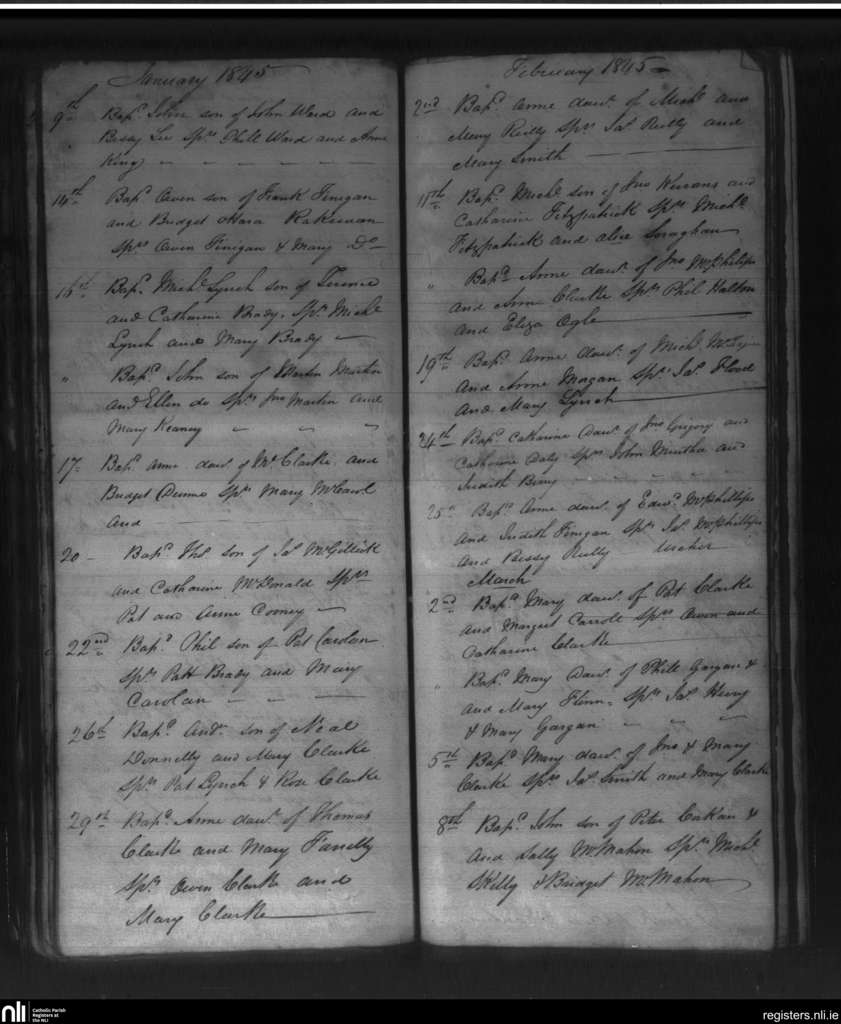 January 1845
9th Bapd. John son of John Ward and
Bessy Lee Sprs Phill Ward and Anne
King
14th Bapd Owen son of Frank Finigan
and Bridget OHara
Sprs Owen Finigan & Mary Do
16th Bapd. Michl Lynch son of Terence
and Catharine Brady. Sprs Michl
Lynch and Mary Brady
" Bapd. John son of Martin Martin
and Ellen do Sprs Jno Martin and
Mary Keaney
17th Bapd. Anne dawr of Clarke and
Bridget Sprs Mary
and
20 Bapd. Ths. son of Jas
and Catharine McDonald Sprs
Pat and Anne Cooney
22nd Bapd Phil son of Pat Carolan
Sprs Patt Brady and Mary
Carolan
26th Bapd. Andw. son of Neal
Donnelly and Mary Clarke
Sprs Pat Lynch & Rose Clarke
29th Bapd Anne dawr. of Thomas
Clarke and Mary
Sprs Owen Clarke and
Mary Clarke
February 1845
2nd Bapd. Anne dawr. of Michl and
Mary Reilly Sprs Jas Reilly and
Mary Smith
11th Bapd. Michl son of Jno and
Catharine Fitzpatrick Sprs Michl
Fitzpatrick and Alice
" Bapd. Anne dawr. of Jno McPhilips
and Anne Clarke Sprs Phil
and Eliza Ogle
19th Bapd. Anne dawr. of Michl
and Anne Magan Sprs Jas Flood
and Mary Lynch
24th Bapd. Catharine dawr. of Jno Grigory and
Catharine Daly Sprs John and
Judith
25th Bapd. Anne dawr. of Edwd. McPhillips
and Judith Finigan Sprs Jas McPhillips
and Bessy Reilly
March
2nd Bapd Mary dawr. of Pat Clarke
and Margret Carroll Sprs Owen and
Catharine Clarke
" Bapd. Mary dawr. of Phill Gargan &
and Mary Sprs Jas Henry
& Mary Gargan
5th Bapd Mary dawr. of Jno & Mary
Clarke Sprs Jas Smith and Mary Clarke
8th Bapd. John son of Peter &
and Sally McMahon Sprs Michl
& Bridget McMahon
nli
Catholic Parish
Registers at
the NLI
registers.nli.ie